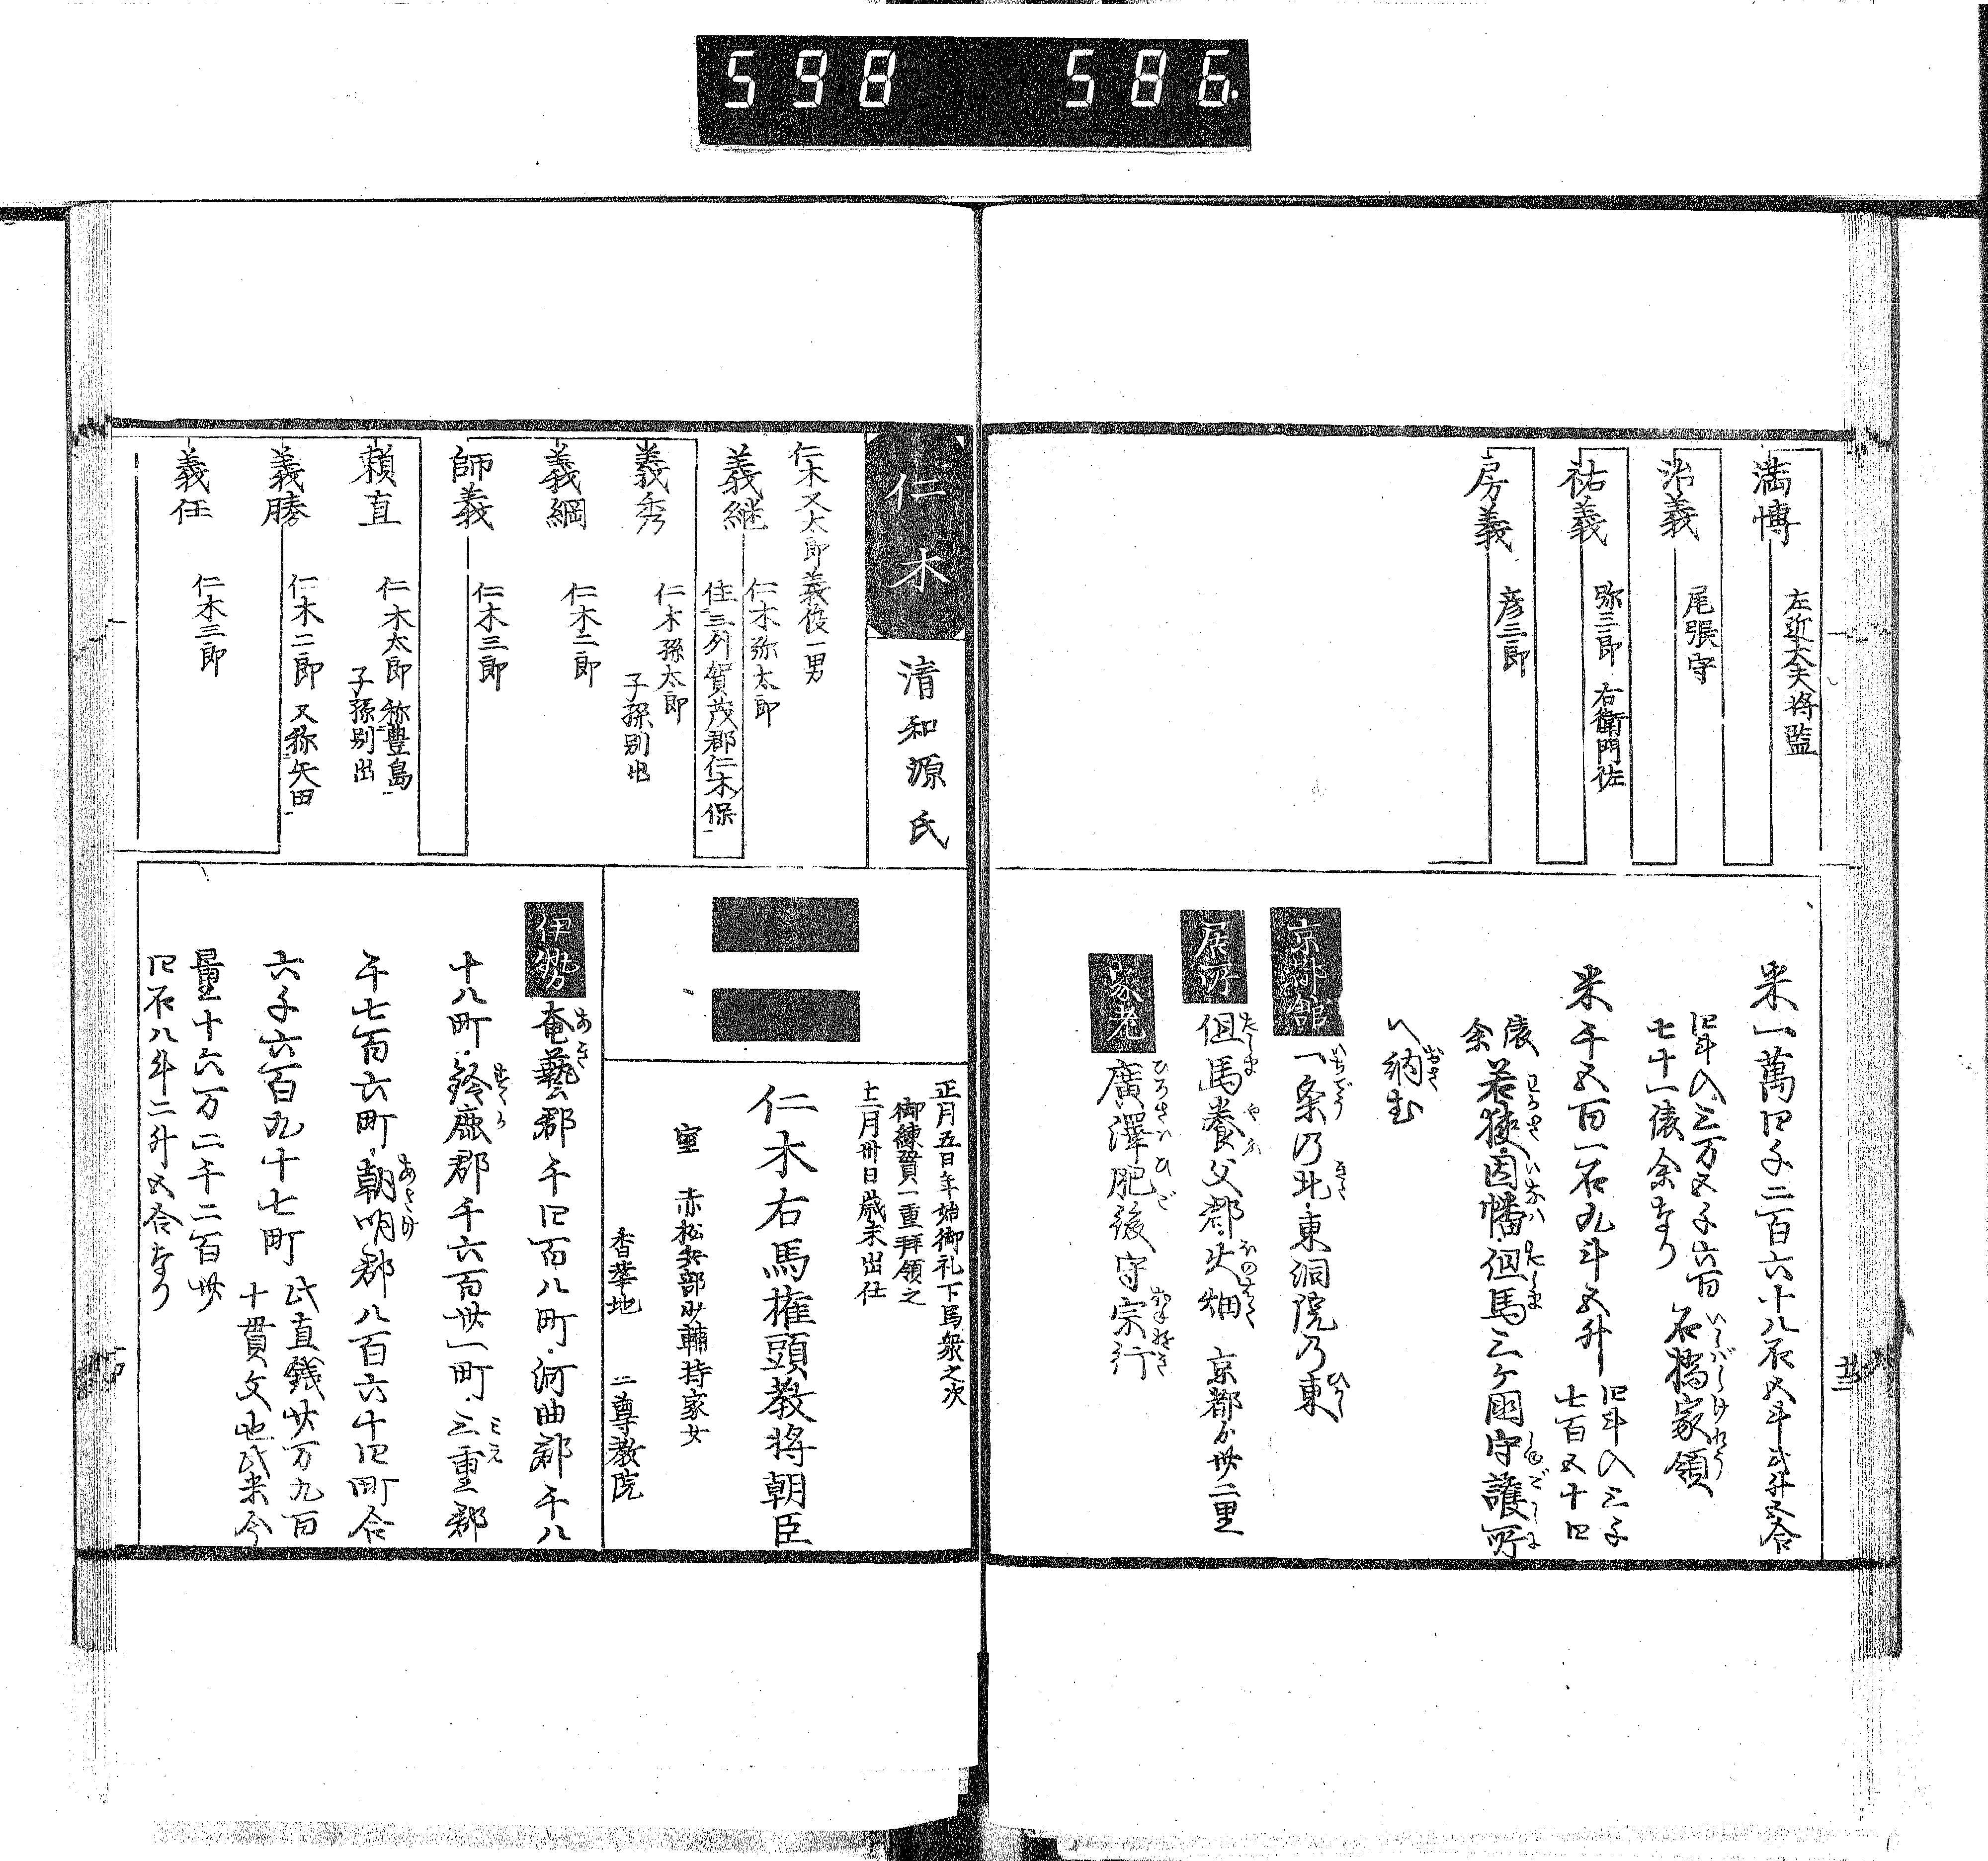 598 586.
満博
左近大夫将監
治義
尾張守
祐義
弥三郎 右衛門佐
房義
彦三郎
米一萬四千二百六十八石五斗弐升五合
四斗入三万五千六百
七十一俵余なり
石橋家領
いしばしけりやう
米千五百一石九斗五升
四斗入三千
七百五十四
俵
余
若狭・因幡・但馬三ケ国守護所
わかさ いなハ たしま しゆごしよ
へ納む
おさ
京都館
一条乃北・東洞院乃東
いちでう きた ひがし
居所
但馬養父郡・火畑 京都ゟ卅二里
たしま やぶ
家老
廣澤肥後守宗行
ひろさハひご むねゆき
十三
仁木
清和源氏
仁木又太郎義俊一男
義継
仁木弥太郎
住三列賀茂郡仁木保
義秀
仁木孫太郎
子孫別出
義綱
仁木二郎
師義
仁木三郎
頼直
仁木太郎 称豊島
子孫別出
義勝
仁木二郎 又称矢田
義任
仁木三郎
正月五日年始御礼下馬衆之次
御練貫一重拝領之
十二月卅日歳末出仕
仁木右馬権頭教将朝臣
室 赤松兵部少輔持家女
香華地 二尊教院
伊勢
奄藝郡千四百八町・河曲郡千八
あき
十八町・鈴鹿郡千六百卅一町・三重郡
すゝか みえ
千七百六町・朝明郡八百六十四町合
あさけ
六千六百九十七町
此直銭廿万九百
十貫文也此米今
量十六万二千二百卅
四石八斗二升五合なり